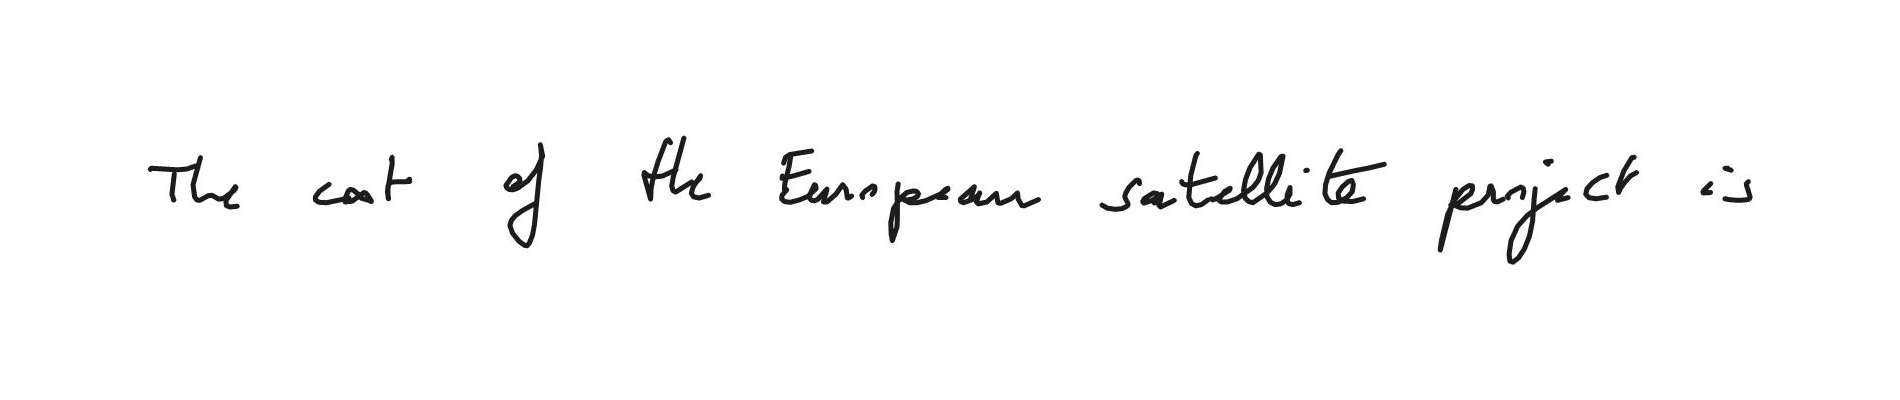 The cost of the European satellite project is